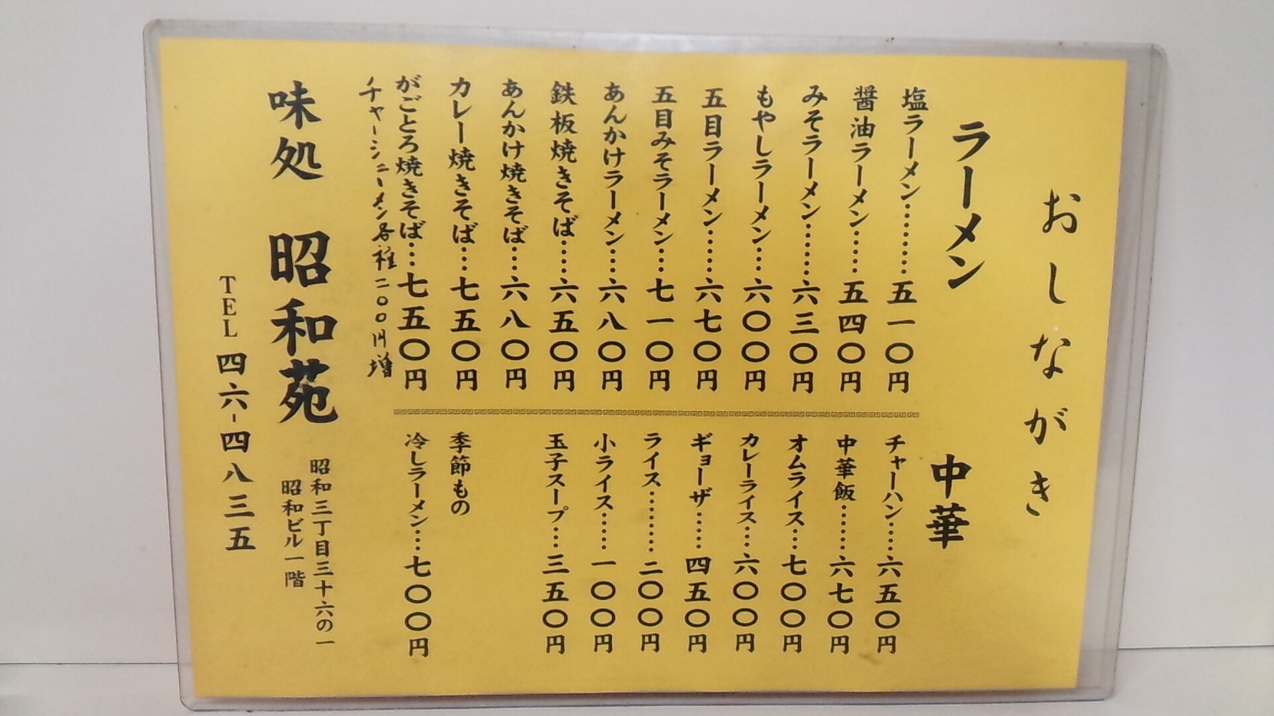 おしながき
ラーメン
塩ラーメン………五一〇円
醤油ラーメン……五四〇円
みそラーメン……六三〇円
もやしラーメン…六〇〇円
五目ラーメン……六七〇円
五目みそラーメン…七一〇円
あんかけラーメン…六八〇円
鉄板焼きそば……六五〇円
あんかけ焼きそば…六八〇円
カレー焼きそば…七五〇円
がごとろ焼きそば…七五〇円
チャーシューメン各種二〇〇円増
中華
チャーハン……六五〇円
中華飯………六七〇円
オムライス…七〇〇円
カレーライス…六〇〇円
ギョーザ……四五〇円
ライス………二〇〇円
小ライス……一〇〇円
玉子スープ…三五〇円
季節もの
冷しラーメン…七〇〇円
味処 昭和苑
昭和三丁目三十六の一
昭和ビル一階
TEL 四六-四八三五